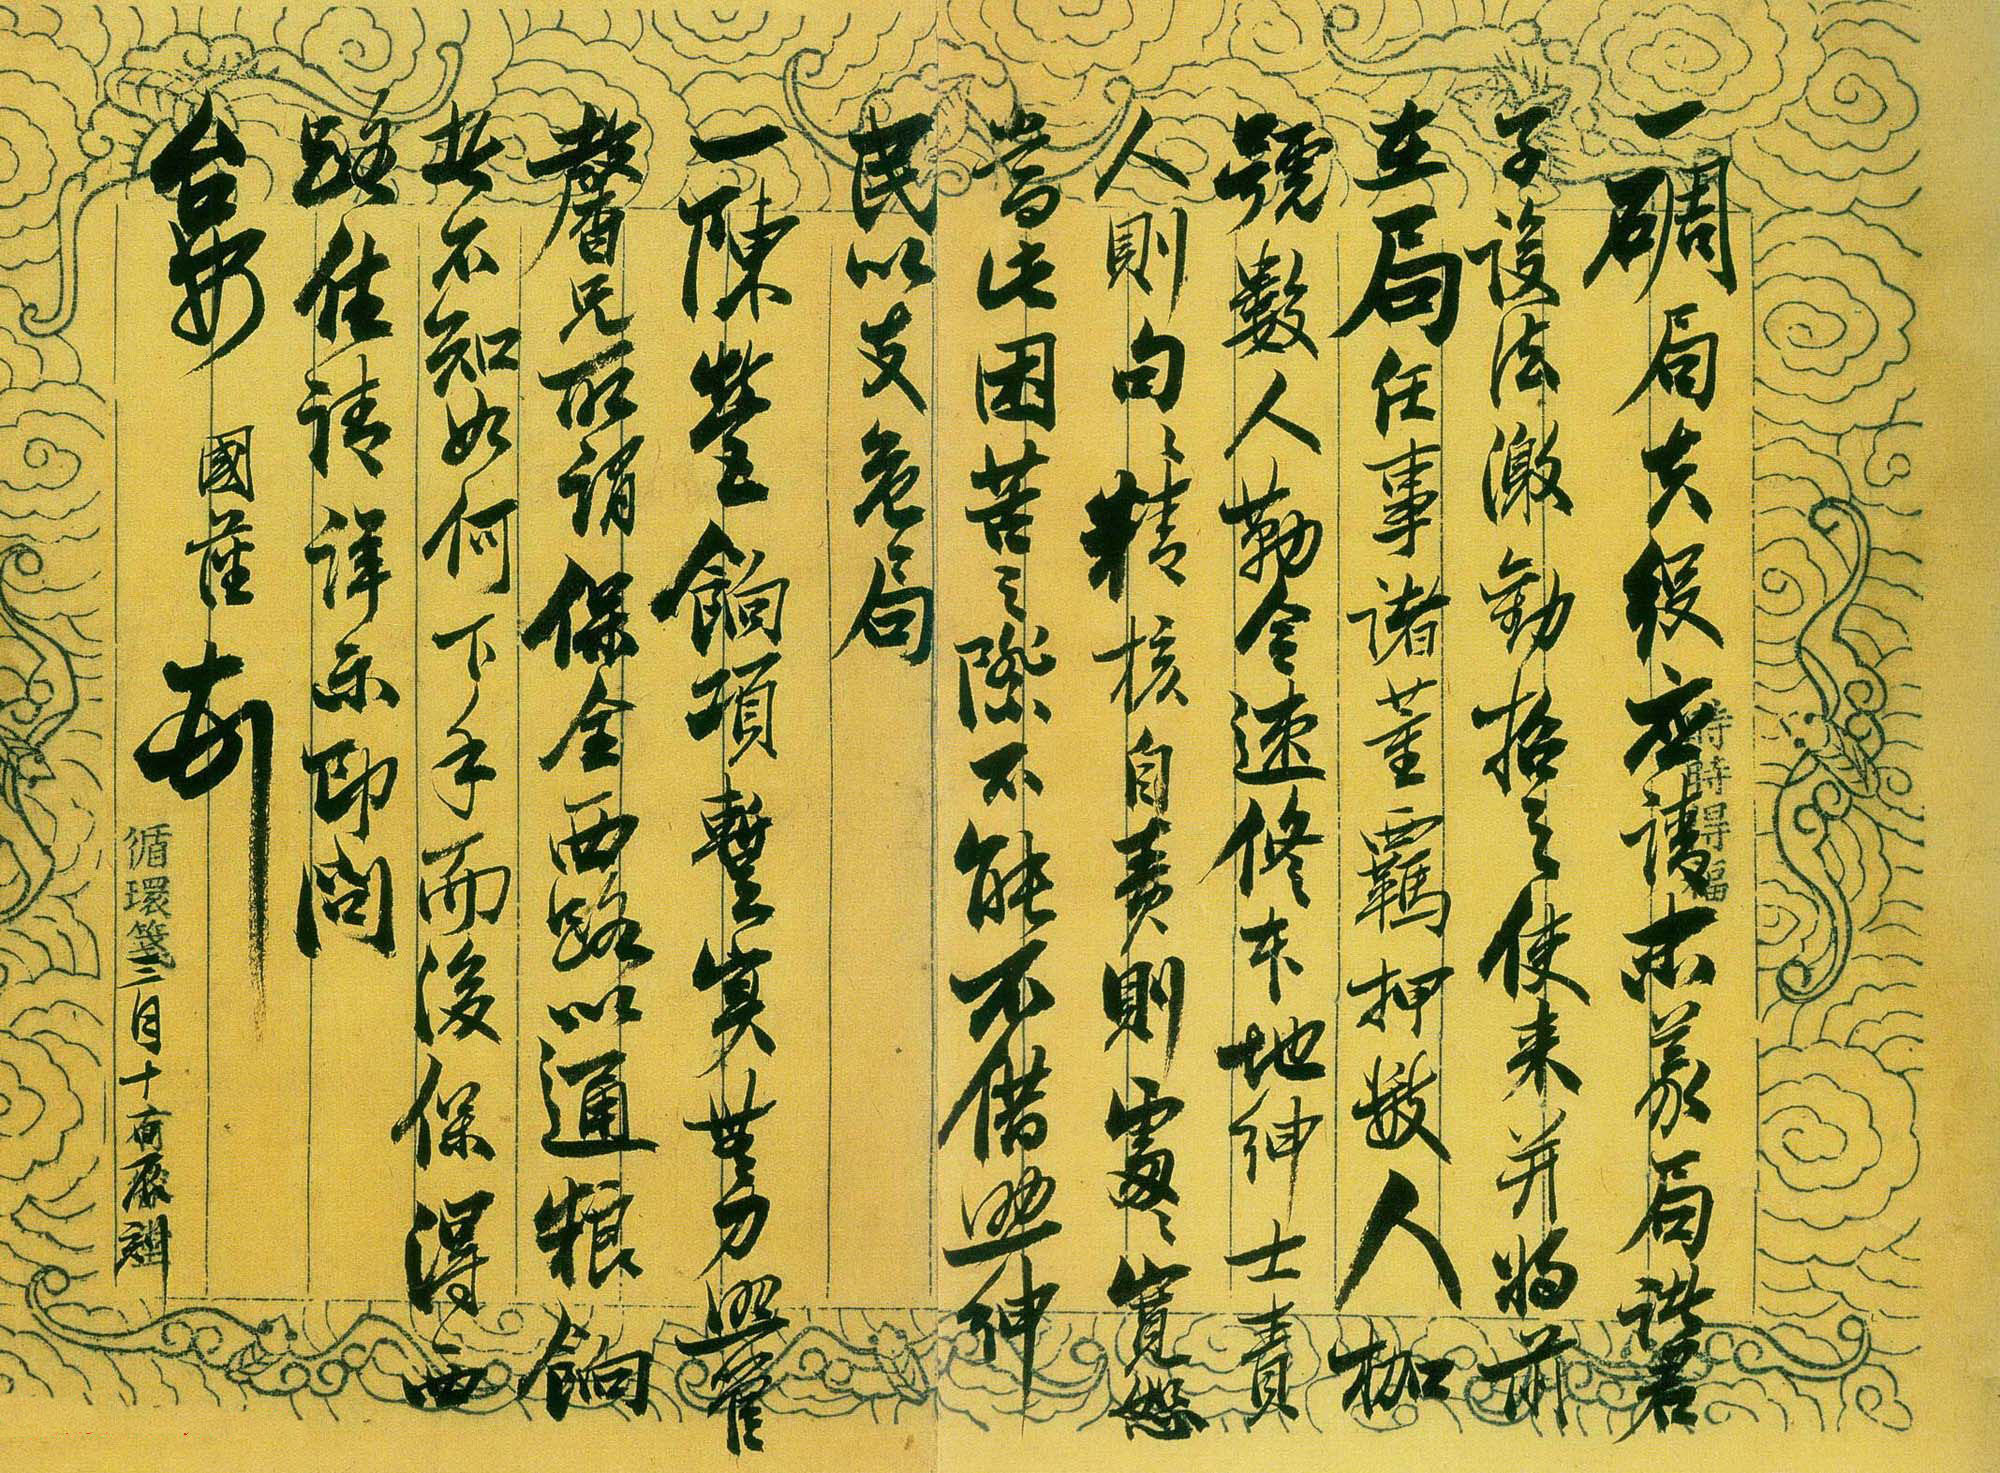 一碉局夫役应请
局諸君
子設法激勸招之使来并將前
在局任事諸董羈押數人枷
號數人勒令速修本地紳士責
人則句句精核自責則處處寬恕
當此困苦之際不能不借照紳
民以支危局
一陳營餉項暫實無力照管
馨兄所謂保全西路以通粮餉
者不知如何下手而後保得西
路住請詳示即問
台安 國荃
時時得福
循環箋
三月十